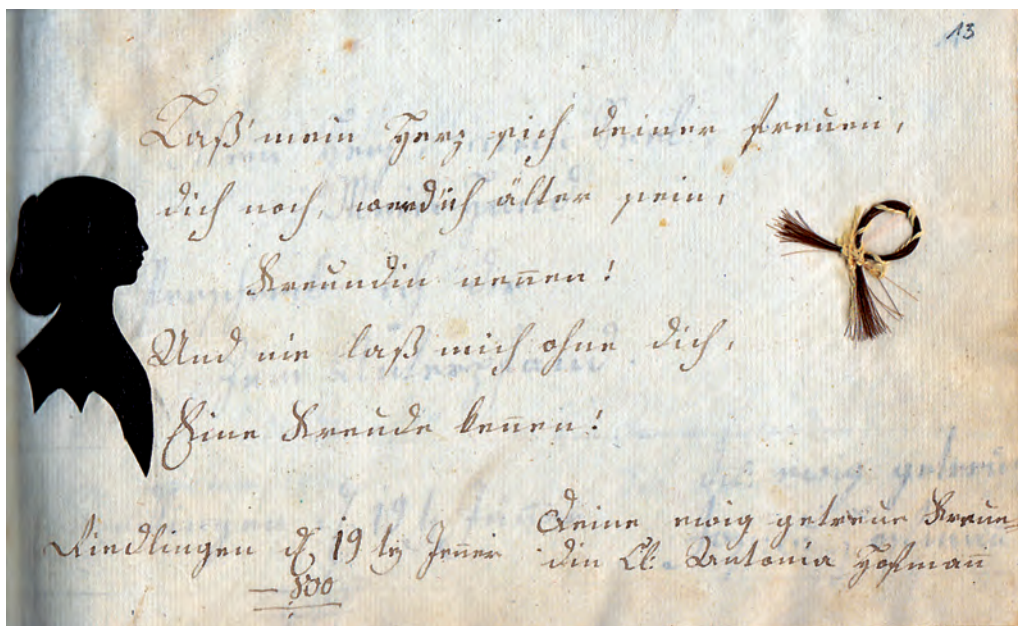 13
Laß' mein Herz sich deiner freuen,
dich noch, werd' ich älter sein,
Freundin nen̅en!
Und nie laß mich ohne dich,
Eine Freude ken̅en!
Riedlingen d. 19 t Jen̅er
Deine ewig getreue Freun=
din Cl: Antonia Hofman̅
— 800